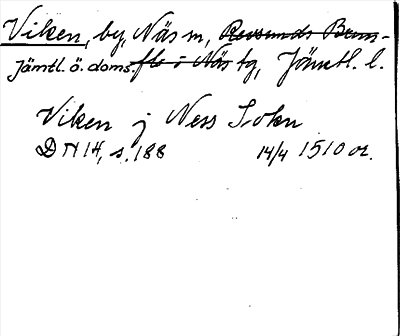 Viken, by, Näs sn, Revsunds Brun-
Jämtl. ö. doms. flo i Näs tg, Jämtl. l.
Viken j Ness Sokn
DN 14, s. 188 14/4 1510 or.